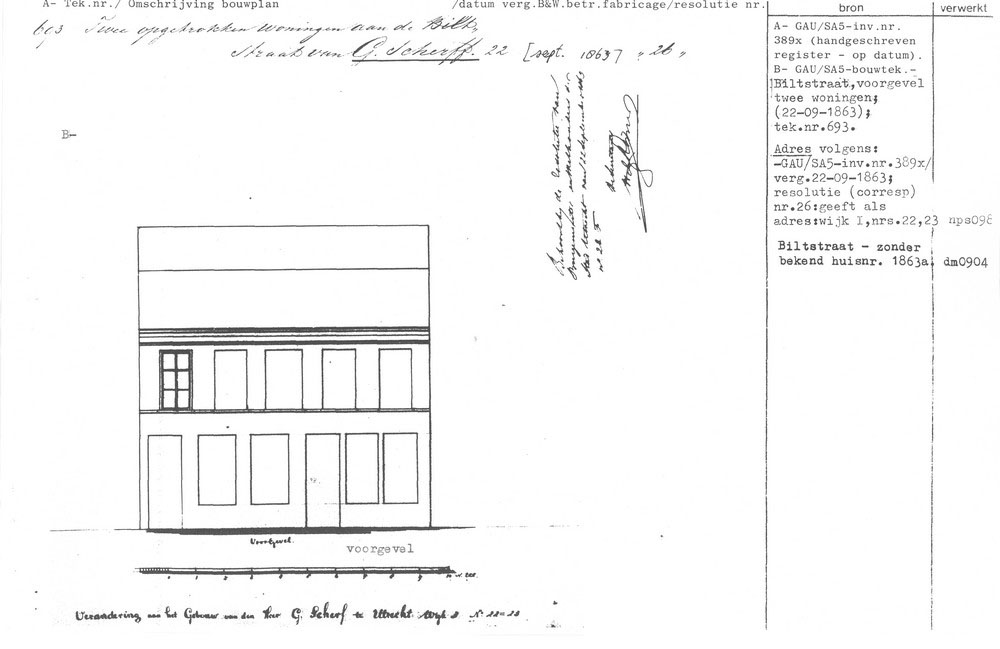 A- Tek.nr./ Omschrijving bouwplan /datum verg.B&W.betr.fabricage/resolutie nr.
Twee opgetrokken woningen aan de Bilt-
Straat van G. Scherff. 22 [sept. 1863] „ 26 „
Behoorende bij de Resolutie van
Burgemeester en Wethouders der
Stad Utrecht van 22 September 1863
B-
Voorgevel.
voorgevel
Verandering aan het Gebouw van den Heer G. Scherf te Utrecht. Wijk I No 22 en 23
bron
verwerkt
A- GAU/SA5-inv.nr.
389x (handgeschreven
register - op datum).
B- GAU/SA5-bouwtek.-
Biltstraat,voorgevel
twee woningen;
(22-09-1863);
tek.nr.693.
Adres volgens:
-GAU/SA5-inv.nr.389x/
verg.22-09-1863;
resolutie (corresp)
nr.26:geeft als
adres:wijk I,nrs.22,23 nps098
Biltstraat - zonder
bekend huisnr. 1863a. dm0904